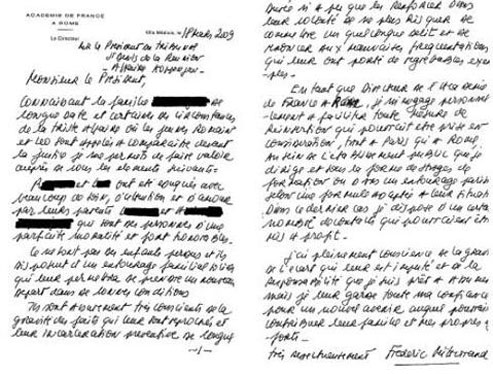 ACADEMIE DE FRANCE
A ROME
Le Directeur
Villa Médicis, le 18 Mars 2009
Monsieur le Président,
Connaissant la famille de
longue date et certaines circonstances
de la triste affaire où les jeunes Romain
et Léo sont appelés à comparaître devant
la justice je me permets de faire valoir
auprès de vous les éléments suivants.
et ont été conçus avec
beaucoup de soin, d'attention et d'amour
par leurs parents et
qui sont des personnes d'une
parfaite moralité et fort honorables.
Ce ne sont pas des enfants perdus et ils
disposent d'un entourage familial solide
qui leur permettra de prendre un nouveau
départ dans de bonnes conditions
Ils sont assurément très conscients de la
gravité des faits qui leur sont reprochés et
leur incarcération préventive de longue
-1-
durée n'a pu que les renforcer dans
leur volonté de ne plus risquer de
commettre un quelconque délit et de
renoncer aux mauvaises fréquentations
qui leur ont porté de regrettables
En tant que Directeur de l'Académie
de France à Rome, je m'engage personnel-
lement à faciliter toute mesure de
réinsertion qui pourrait être prise en
considération, tant à Paris qu'à Rome
au sein de l'établissement public que je
dirige et sous la forme de stages de
formation ou dans un entourage
selon une formule adaptée à leur situation
Dans ce dernier cas je dispose d'un certain
nombre de contacts qui pourraient être
mis à profit.
J'ai pleinement conscience de la gravité
de l'écart qui leur est imputé et de la
responsabilité que je suis prêt à
mais je leur garde toute ma confiance
pour un nouvel avenir auquel pourront
contribuer leur famille et mes propres
efforts.
très respectueusement Frédéric Mitterrand